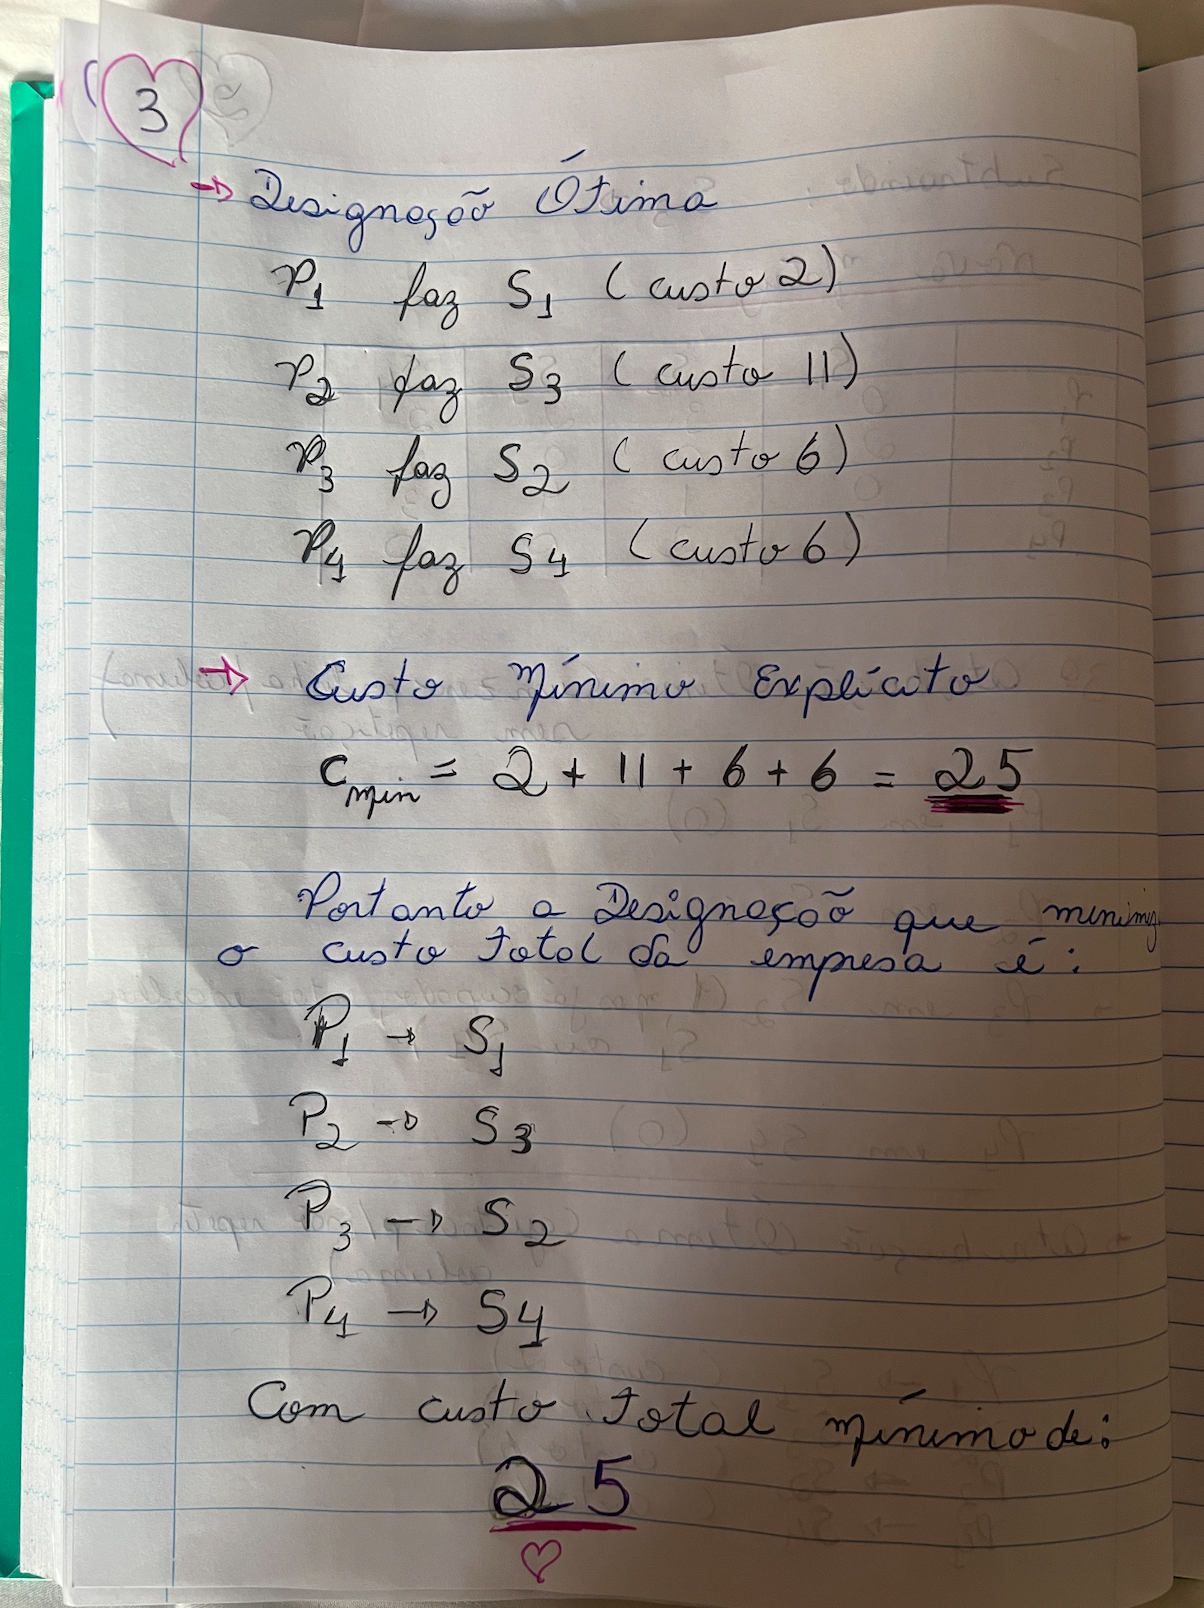 3
→ Designação Ótima
P1 faz S1 (custo 2)
P2 faz S3 (custo 11)
P3 faz S2 (custo 6)
P4 faz S4 (custo 6)
→ Custo Mínimo Explícito
Cmin = 2 + 11 + 6 + 6 = 25
Portanto a Designação que minimiz
o custo total da empresa é:
P1 → S1
P2 → S3
P3 → S2
P4 → S4
Com custo total mínimo de:
25